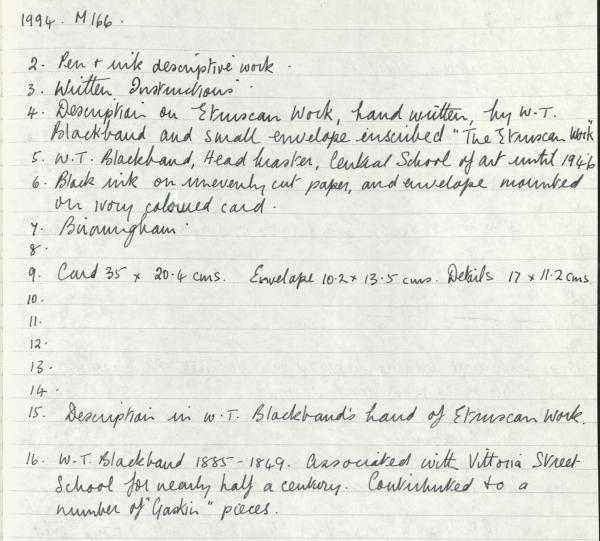 1994. M166.
2. Pen + ink descriptive work.
3. Written Instructions.
4. Description on Etruscan Work, hand written, by W.T.
Blackband and small envelope inscribed "The Etruscan Work"
5. W.T. Blackband, Head Master, Central School of art until 1946
6. Black ink on unevenly cut paper, and envelope mounted
on ivory coloured card.
7. Birmingham.
8.
9. Card 35 x 20.4 cms. Envelope 10.2 x 13.5 cms. Details 17 x 11.2 cms.
10.
11.
12.
13.
14.
15. Description in W.T. Blackband's hand of Etruscan Work.
16. W.T. Blackband 1885-1849. Associated with Vittoria Street
School for nearly half a century. Contributed to a
number of "Gaskin" pieces.